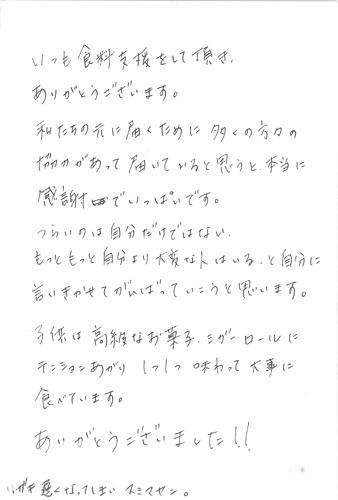 いつも食料支援をして頂き、
ありがとうございます。
私たちの元に届くために多くの方々の
協力があって届いていると思うと、本当に
感謝でいっぱいです。
つらいのは自分だけではない、
もっともっと自分より大変な人はいる、と自分に
言いきかせてがんばっていこうと思います。
子供は高級なお菓子、シガーロールに
テンションあがり 1つ1つ 味わって大事に
食べています。
ありがとうございました!!
ハガキ悪くなってしまいスミマセン。